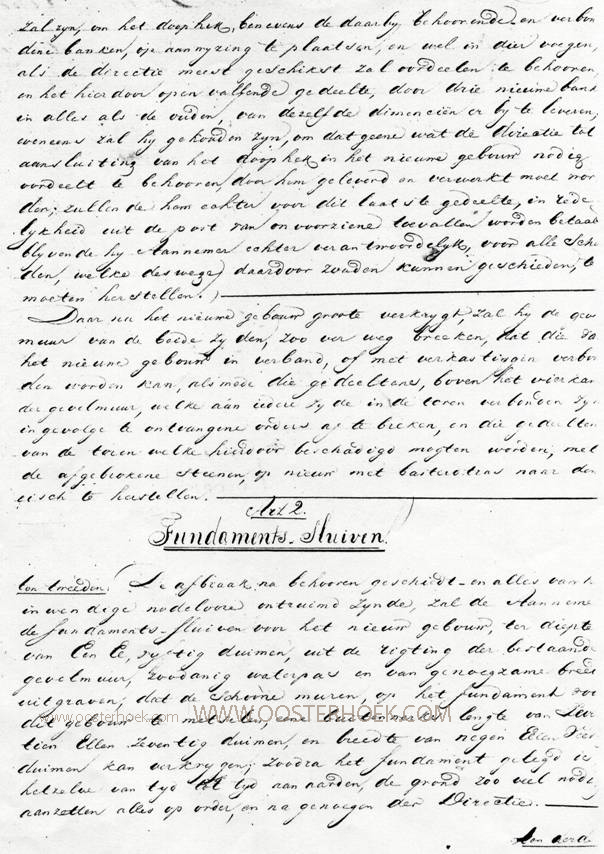 zal zyn, om het doophek, benevens de daarby behoorende en verbon
dene banken, op aanwyzing te plaatsen, en wel in dier voegen,
als de directie meest geschikst zal oordeelen te behooren,
en het hierdoor open vallende gedeelte, door drie nieuwe bank
in alles als de ouden, van dezelfde dimenciën er by te leveren;
eveneens zal hy gehouden zyn, om dat geene wat de directie tot
aansluiting van het doophek in het nieuwe gebouw nodig
oordeelt te behooren, door hem geleverd en verwerkt moet wor
den; zullende hem echter voor dit laatste gedeelte, in rede
lykheid uit de post van onvoorziene toevallen worden betaal
blyvende hy Aannemer echter verantwoordelyk, voor alle scha
den, welke deswege daardoor zouden kunnen geschieden, te
moeten herstellen.
Daar nu het nieuwe gebouw groote verkrygt, zal hy de geve
muur van de beide zyden, zoo ver weg breeken, dat die
het nieuwe gebouw in verband, of met verkastingen verbon
den worden kan, als mede die gedeeltens, boven het vierkan
der gevelmuur, welke aan iedere zyde in de toren verbonden zyn
ingevolge te ontvangene orders af te breken, en die gedeelten
van de toren welke hierdoor beschadigd mogten worden, met
de afgebrokene steenen, op nieuw met bastertras naar den
eisch te herstellen.
Art 2.
Fundaments-Sluiven.
Ten tweeden. De afbraak na behooren geschiedt en alles van
inwendige nodeloore ontruimd zynde, zal de Aanneme
de fundaments-sluiven voor het nieuw gebouw, ter diepte
van Een El, zestig duimen, uit de rigting der bestaande
gevelmuur, zoodanig waterpas en van genoegzame breed
uitgraven, dat de schoone muren, op het fundament
dit gebouw te metselen, eene buitenwerks lengte van
tien Ellen zeventig duimen, en breedte van negen Ellen
duimen kan verkrygen; zoodra het fundament gelegd is
hetzelve van tyd tot tyd aanaarden, de grond zoo veel nodig
aanzetten alles op order, en na genoegen der Directie.
www.oosterhoek.com
WWW.OOSTERHOEK.COM